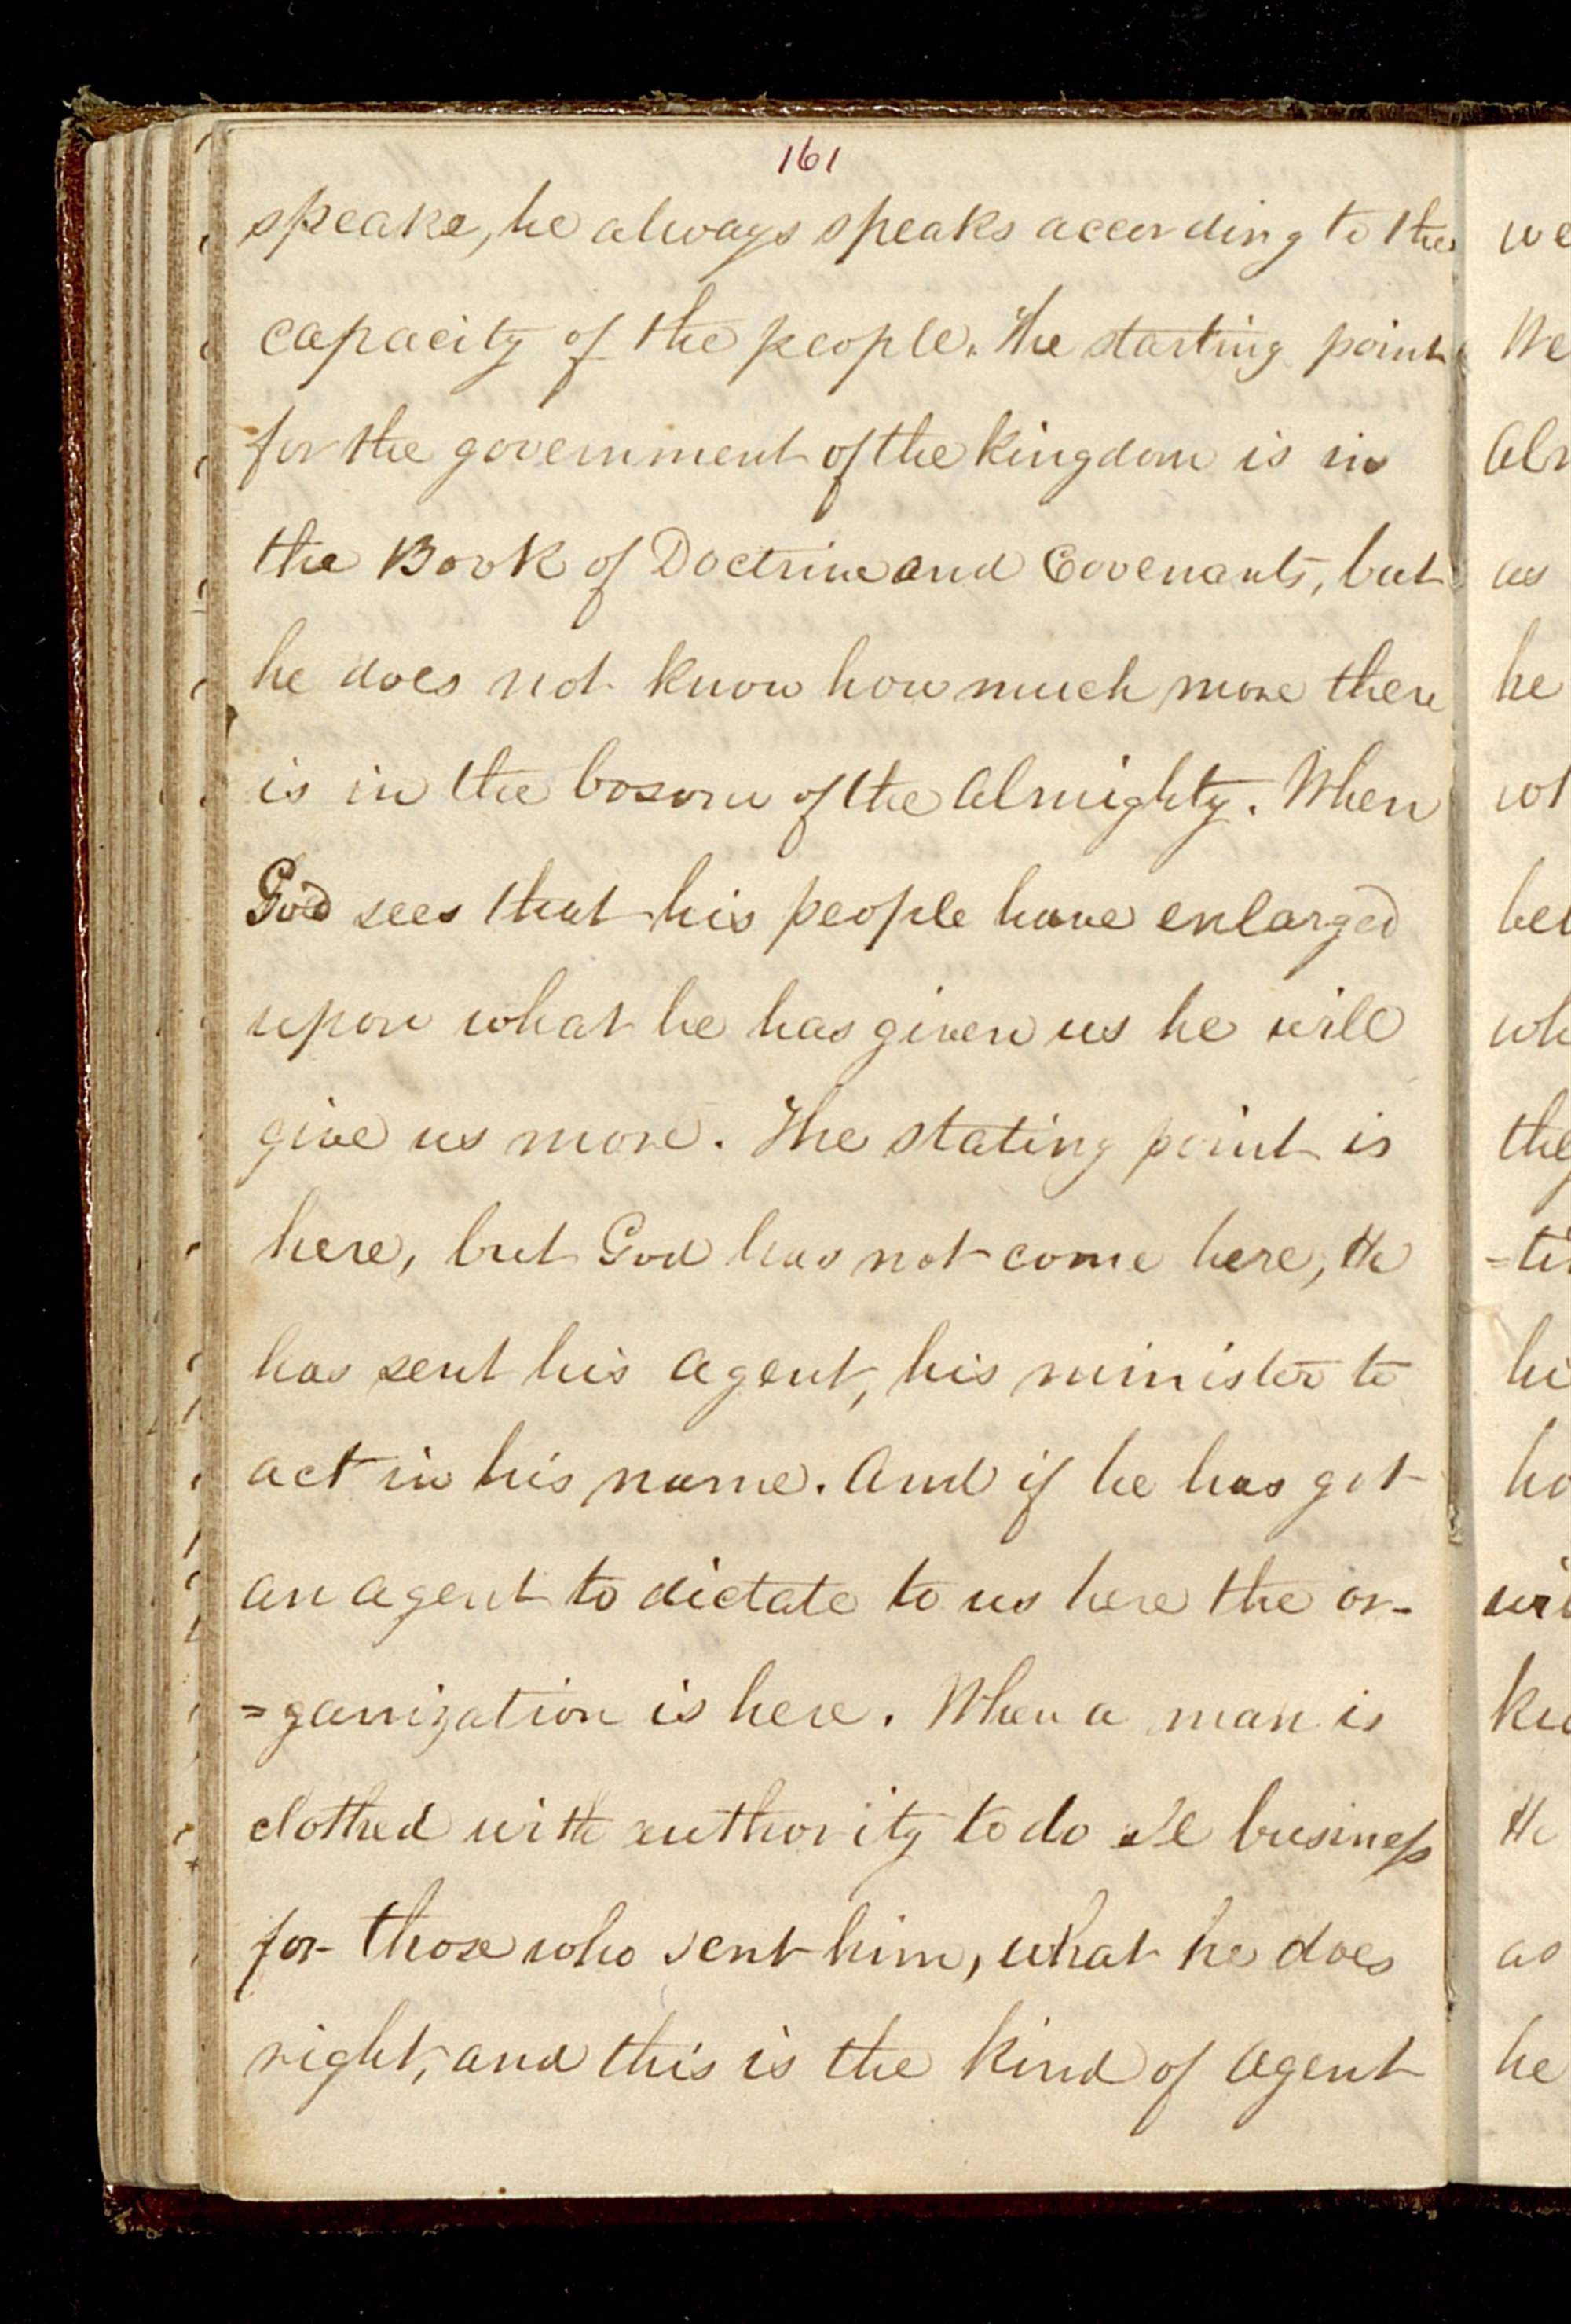 161
speake, he always speaks according to the
capacity of the people. The starting point
for the government of the kingdom is in
the Book of Doctrine and Covenants, but
he does not know how much more there
is in the bosom of the Almighty. When
God sees that his people have enlarged
upon what he has given us he will
give us more. The stating point is
here, but God has not come here, He
has sent his agent, his minister to
act in his name. And if he has got
an agent to dictate to us here the or-
=ganization is here. When a man is
clothed with authority to do business
for those who sent him, what he does
right, and this is the kind of agent
we
We
Alm
as
he
be
wh
the
=ti
hi
ho
wi
He
as
he